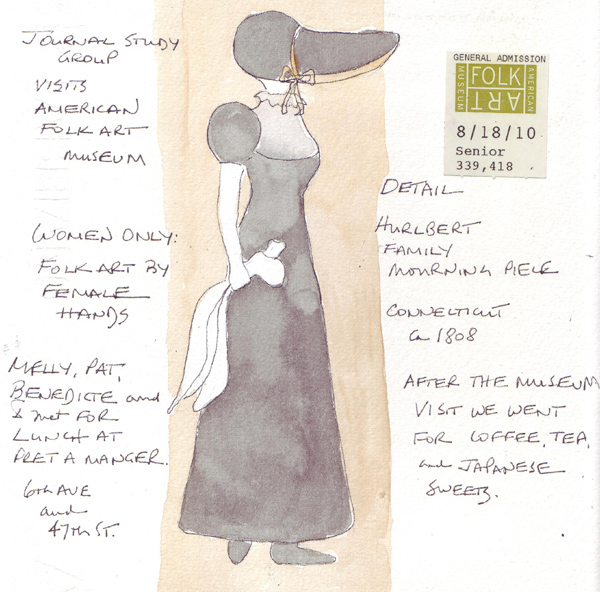 JOURNAL STUDY
GROUP
VISITS
AMERICAN
FOLK ART
MUSEUM
WOMEN ONLY:
FOLK ART BY
FEMALE
HANDS
MELLY, PAT,
BENEDICTE and
I met FOR
LUNCH AT
PRET A MANGER.
6th AVE
and
47th ST.
GENERAL ADMISSION
MUSEUM
FOLK
ART
AMERICAN
8/18/10
Senior
339,418
DETAIL
HURLBERT
FAMILY
MOURNING PIECE
CONNECTICUT
Ca 1808
AFTER THE MUSEUM
VISIT WE WENT
FOR COFFEE, TEA,
and JAPANESE
SWEETS.